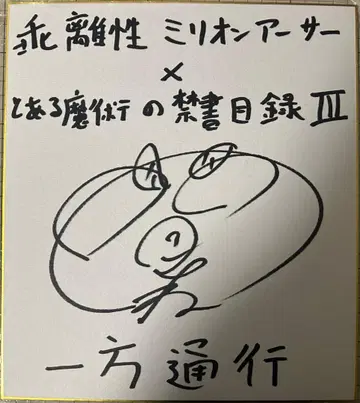 乖離性 ミリオンアーサー
×
とある魔術の禁書目録III
一方通行